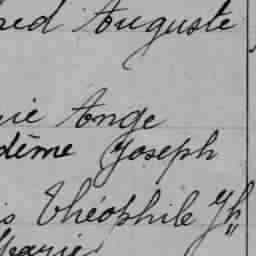 red Auguste
rie Ange
dême Joseph
is Théophile Jh
Marie